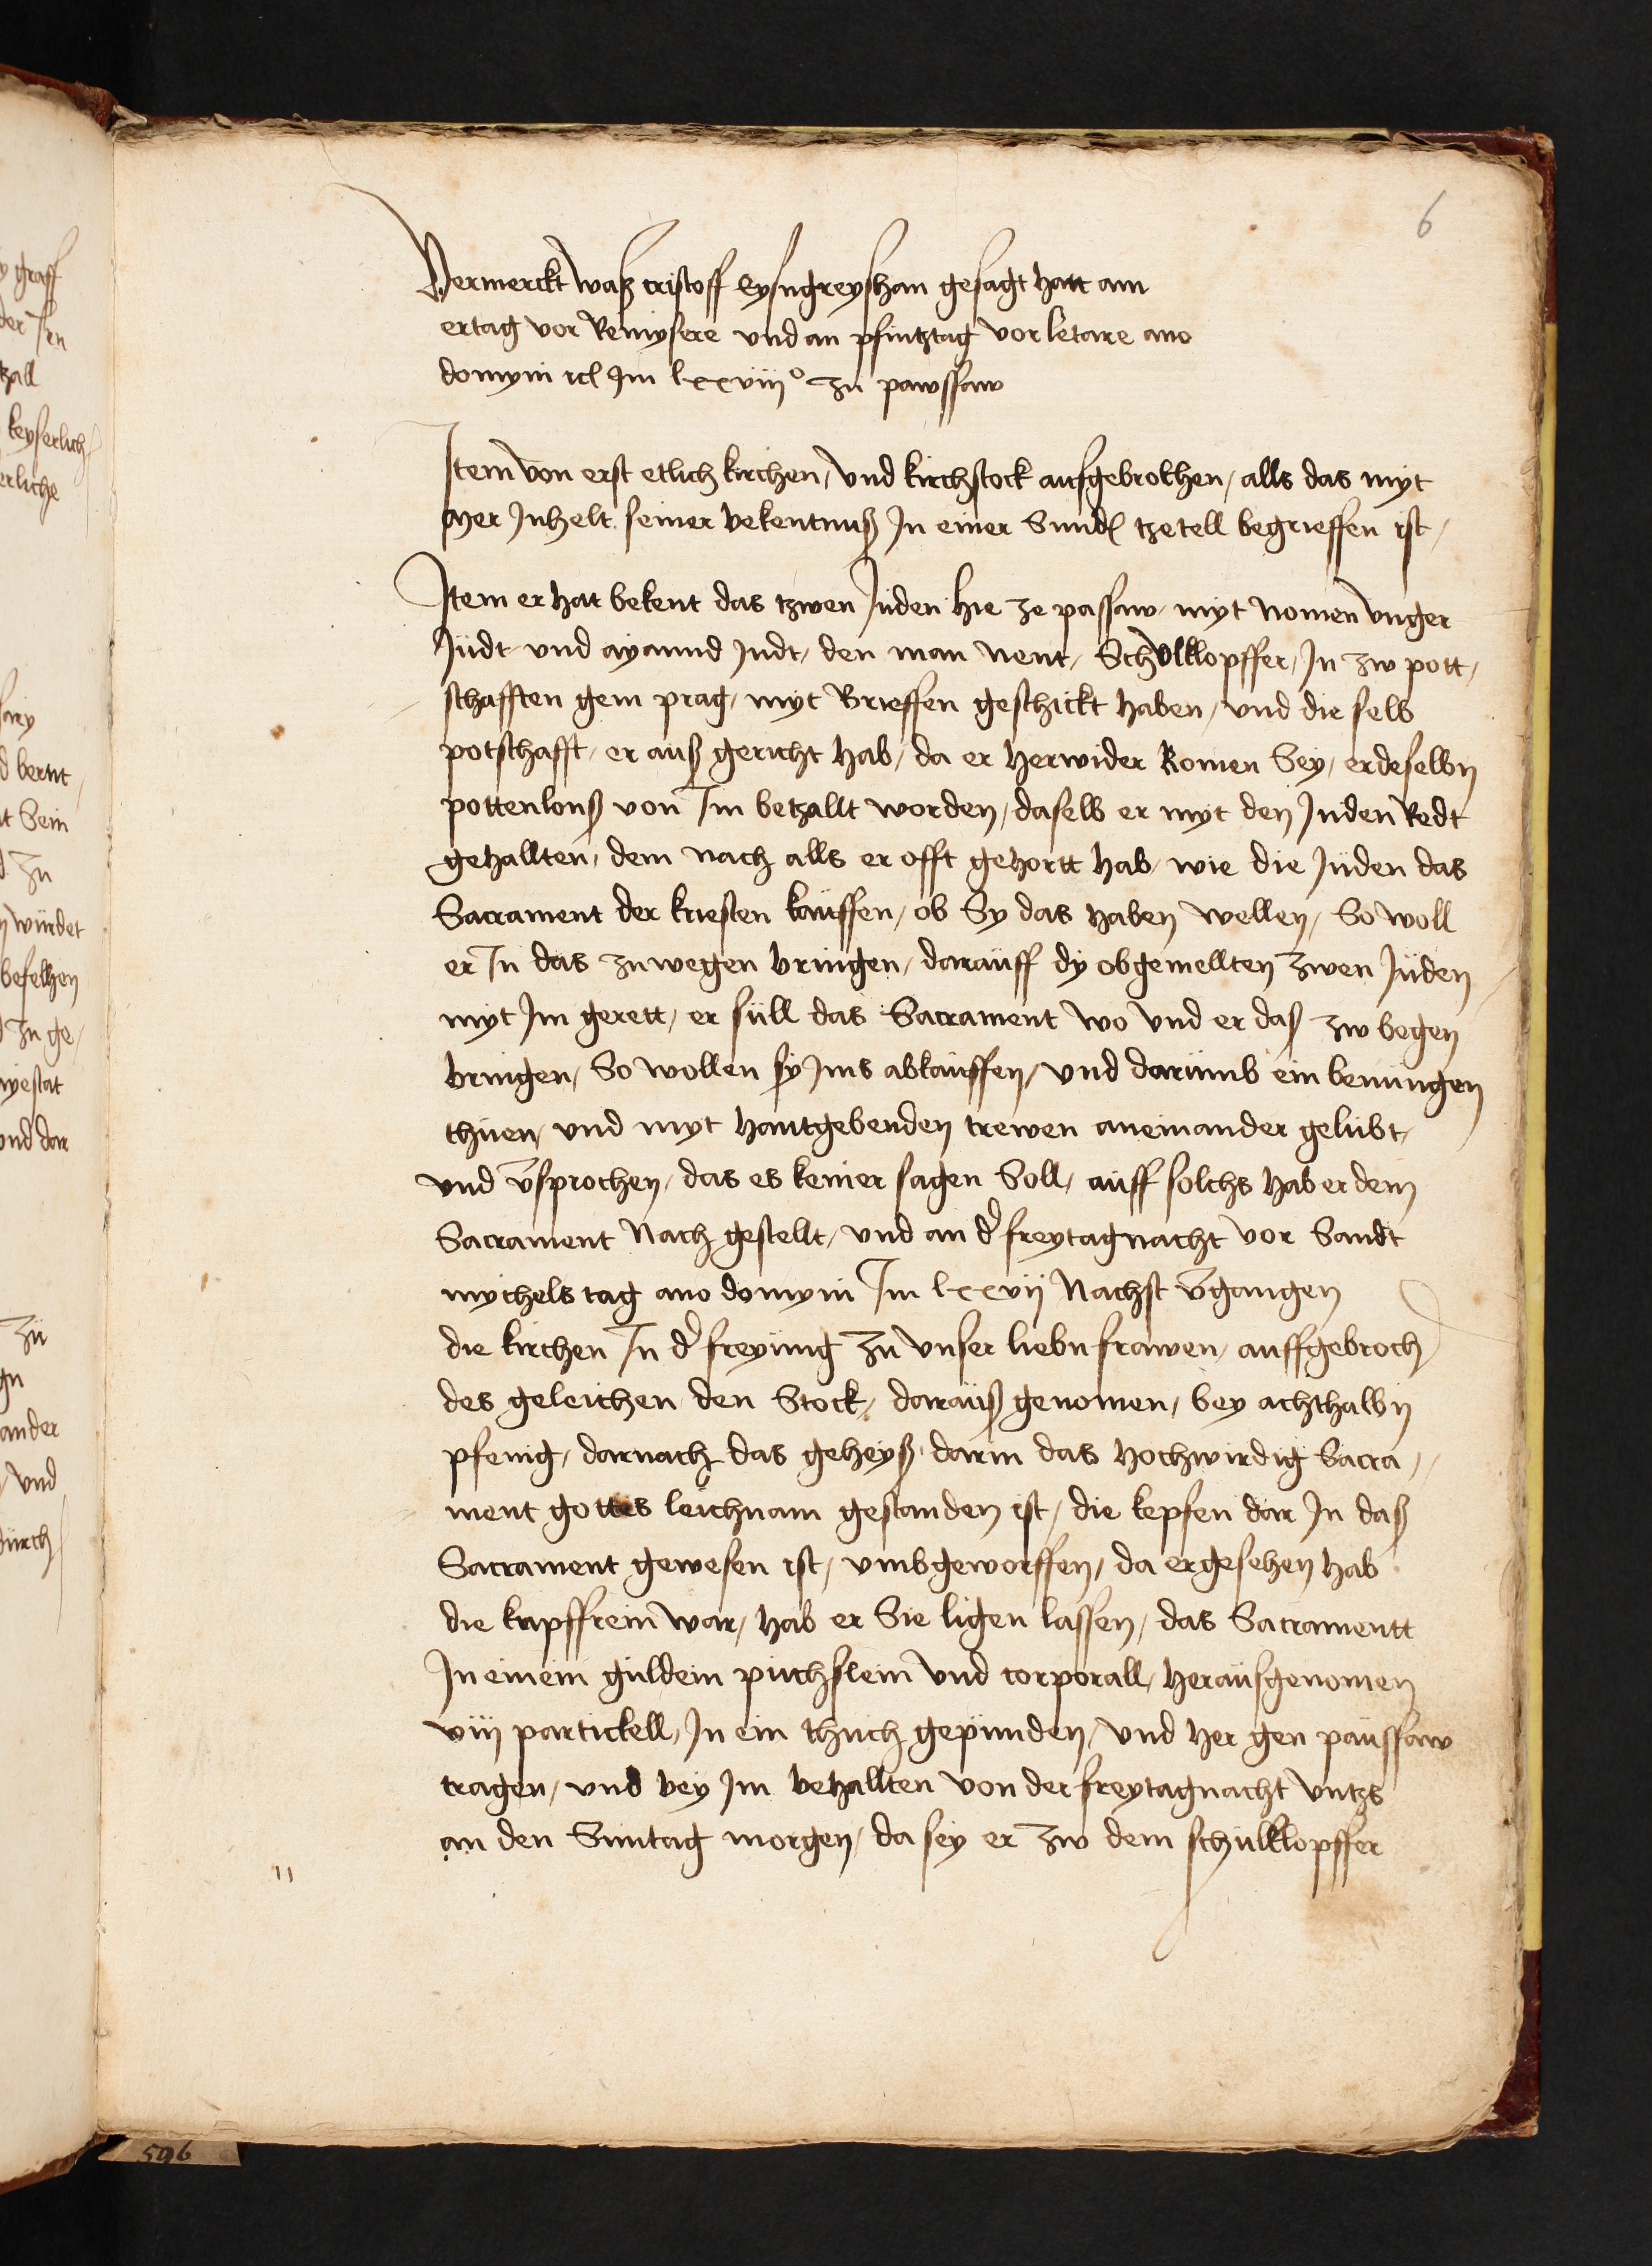 6
Vermerckt waß cristoff Eysngreyshan gesagt hatt am
ertag vor Remysere und an pfintztag vor letare ano
domyni ꝛcͭ Im lxxviijᵒ zu pawssaw
Item von erst etlich kirchen, und kirchstock aufgebrochen, alls das myt
mer Inhelt seiner bekentnuß In einer Sunder tzetell begrieffen ist,
Item er hat bekent das tzwen Juden hie ze passaw, myt Nomen unger
Judt und ayannd Judt, den man nent, Schulklopffer, In zw pott,
schafften gem prag, myt Brieffen geschickt haben, und die selb
potschafft, er auß gericht hab, da er herwider komen Sey, er deselbn
pottenlons von Im betzallt worden, daselb er myt den Juden Redt
gehallten, dem nach alls er offt gehortt hab, wie die Juden das
Sacrament der kristen kauffen, ob Sy das haben wellen, So woll
er In das zuwegen bringen, darauff dy obgemellten zwen Juden
myt Im gerett, er süll das Sacrament wo und er daß zw begen
bringen, So wollen sy Ims abkauffen, und darumb ein benungen
thuen, und myt hantgebenden trewen aneinander gelübt,
und v̄sprochen, das es keiner sagen Soll, auff solchs hab er dem
Sacrament Nach gestellt, und an d̾ freytagnacht vor Sandt
mychels tag ano domyni Im lxxvij Nachst v̄gangen
die kirchen In d̾ freyung zu unser liebn frawen, auffgebroch
des geleichen den Stock, darauß genomen, bey achthalbn
pfenig, darnach das geheyß, darin das hochwirdig Sacra,
ment gottes leichnam gestanden ist, die kepsen dar In daß
Sacrament gewesen ist, umbgeworffen, da er gesehen hab
die kupffrein war, hab er Sie ligen lassen, das Sacramentt
In einem guldein puchslein und corporall, herausgenomen
viij partickell, In ein thuch gepunden, und her gen paussaw
tragen, und bey Im behallten von der freytagnacht untzs
an den Suntag morgen, da sey er zw dem schulklopffer
11
596